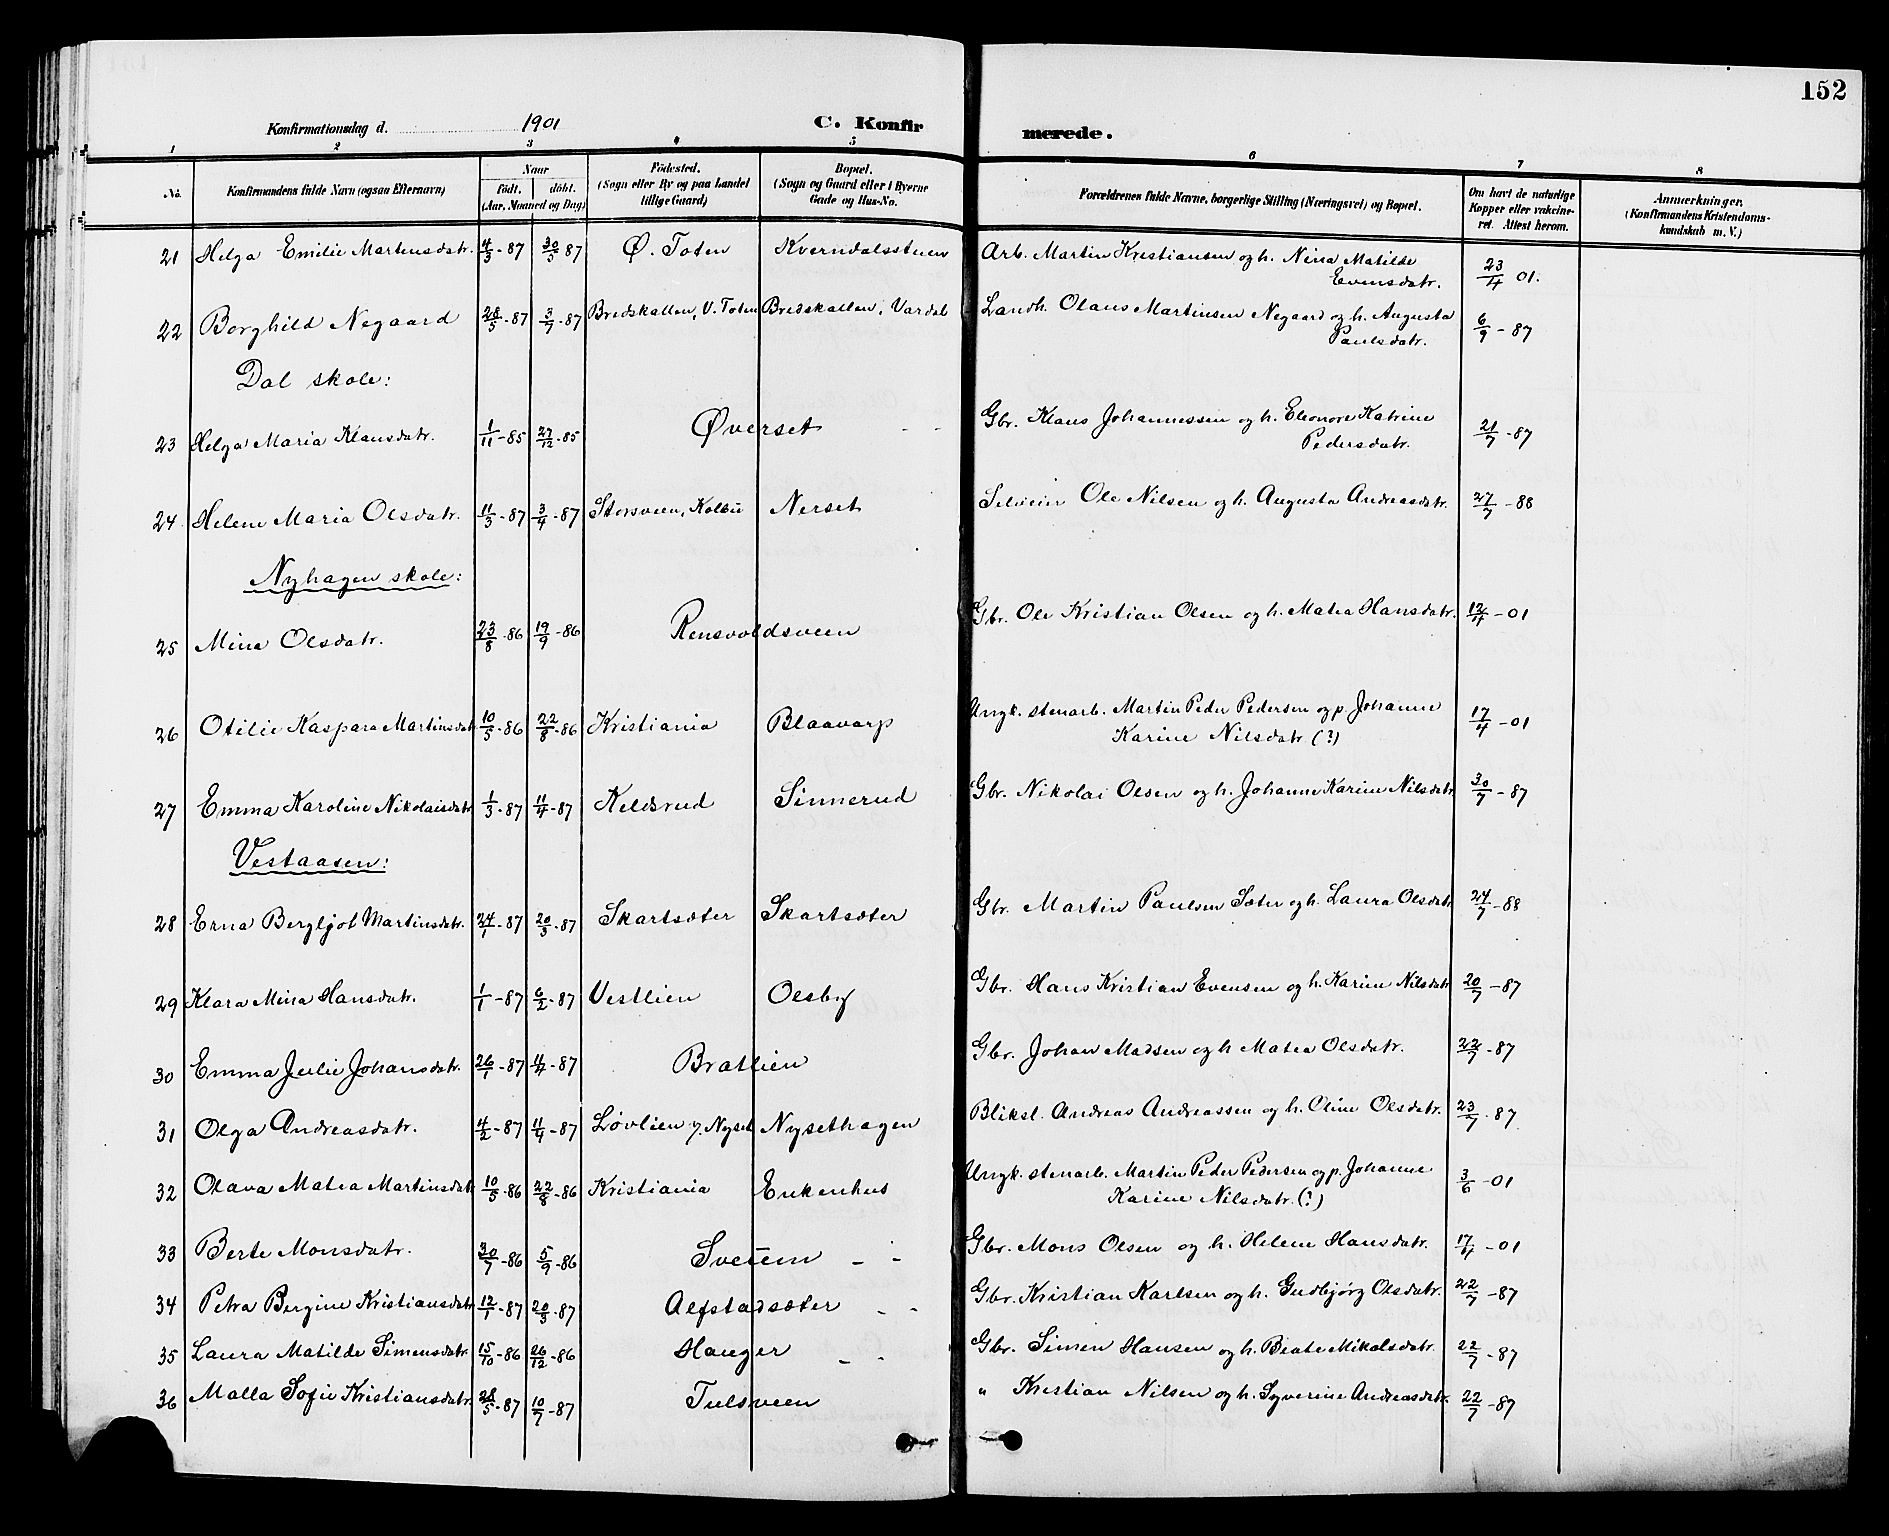 152
Konfirmationsdag d. 1901 C. Konfir merede.
1 2 3 4 5 6 7 8
No. Konfirmandens fulde Navn (ogsaa Efternavn) Naar födt. döbt. (Aar, Maaned og Dag) Födested. (Sogn eller By og paa Landet tillige Gaard) Bopæl. (Sogn og Gaard eller i Byerne Gade og Hus-No. Forældrenes fulde Navne, borgerlige Stilling (Næringsvei) og Bopæl. Om havt de naturlige Kopper eller vakcineret. Attest herom. Anmærkninger. (Konfirmandens Kristendomskundskab m. V.)
21 Helga Emilie Martinsdatr. 4/3-87 30/5 87 Ø. Toten Kverndalsstuen Arb. Martin Kristiansen og h. Nina Matilde Evensdatr. 23/4 01.
22 Borghild Negaard 28/5-87 3/7-87 Bredskallen, V. Toten Bredskallen, Vardal Landh. Olaus Martinsen Negaard og h. Augusta Paulsdatr. 6/9-87
Dal skole:
23 Helga Maria Klausdatr. 1/11-85 27/12-85 Øverset Gbr. Klaus Johannessen og h. Eleonore Katrine Pedersdatr. 21/7-87
24 Helene Maria Olsdatr. 11/3-87 3/4-87 Storsveen, Kolbu Nerset Selveier Ole Nilsen og h. Augusta Andreasdatr. 27/7-88
Nyhagen skole:
25 Mina Olsdatr. 23/8-86 19/9-86 Rensvoldsveen Gbr. Ole Kristian Olsen og h. Matea Hansdatr. 12/4-01
26 Otilie Kaspara Martinsdatr 10/5-86 22/8-86 Kristiania Blaavarp Ungk. stenarb. Martin Peder Pedersen og p. Johanne Karine Nilsdatr (?) 17/4-01
27 Emma Karoline Nikolaisdatr 1/3-87 11/4-87 Keldsrud Sinnerud Gbr. Nikolai Olsen og h. Johanne Karine Nilsdatr 30/7-87
Vestaasen:
28 Erna Bergljot Martinsdatr. 24/1-87 20/3-87 Skartsæter Skartsæter Gbr. Martin Paulsen Sæter og h. Laura Olsdatr 24/7-88
29 Klara Mina Hansdatr. 1/1-87 6/2-87 Vestlien Olsby Gbr. Hans Kristian Evensen og h. Karine Nilsdatr 20/7-87
30 Emma Julie Johansdatr. 26/1-87 11/4-87 Bratlien Gbr. Johan Madsen og h Matea Olsdatr. 22/7-87
31 Olga Andreasdatr. 4/2-87 11/4-87 Løvlien u. Nyset Nysethagen Bliksl. Andreas Andreassen og h. Oline Olsdatr. 23/7-87
32 Olava Matea Martinsdatr 10/5-86 22/8-86 Kristiania Enkenhus Ungk. stenarb. Martin Peder Pedersen og p. Johanne Karine Nilsdatr. (?) 3/6-01
33 Berte Monsdatr. 30/7-86 5/9-86 Sveum - - Gbr. Mons Olsen og h. Helene Hansdatr. 17/4-01
34 Petra Bergine Kristiansdatr 12/1-87 20/3-87 Alfstadsæter - - Gbr. Kristian Karlsen og h. Gudbjørg Olsdatr. 22/7-87
35 Laura Matilde Simensdatr. 15/10-86 26/12-86 Hauger - - Gbr. Simen Hansen og h. Beate Mikalsdatr. 22/7-87
36 Malla Sofie Kristiansdatr. 28/5-87 10/7-87 Tulsveen " Kristian Nilsen og h. Syverine Andreasdatr. 22/7-87